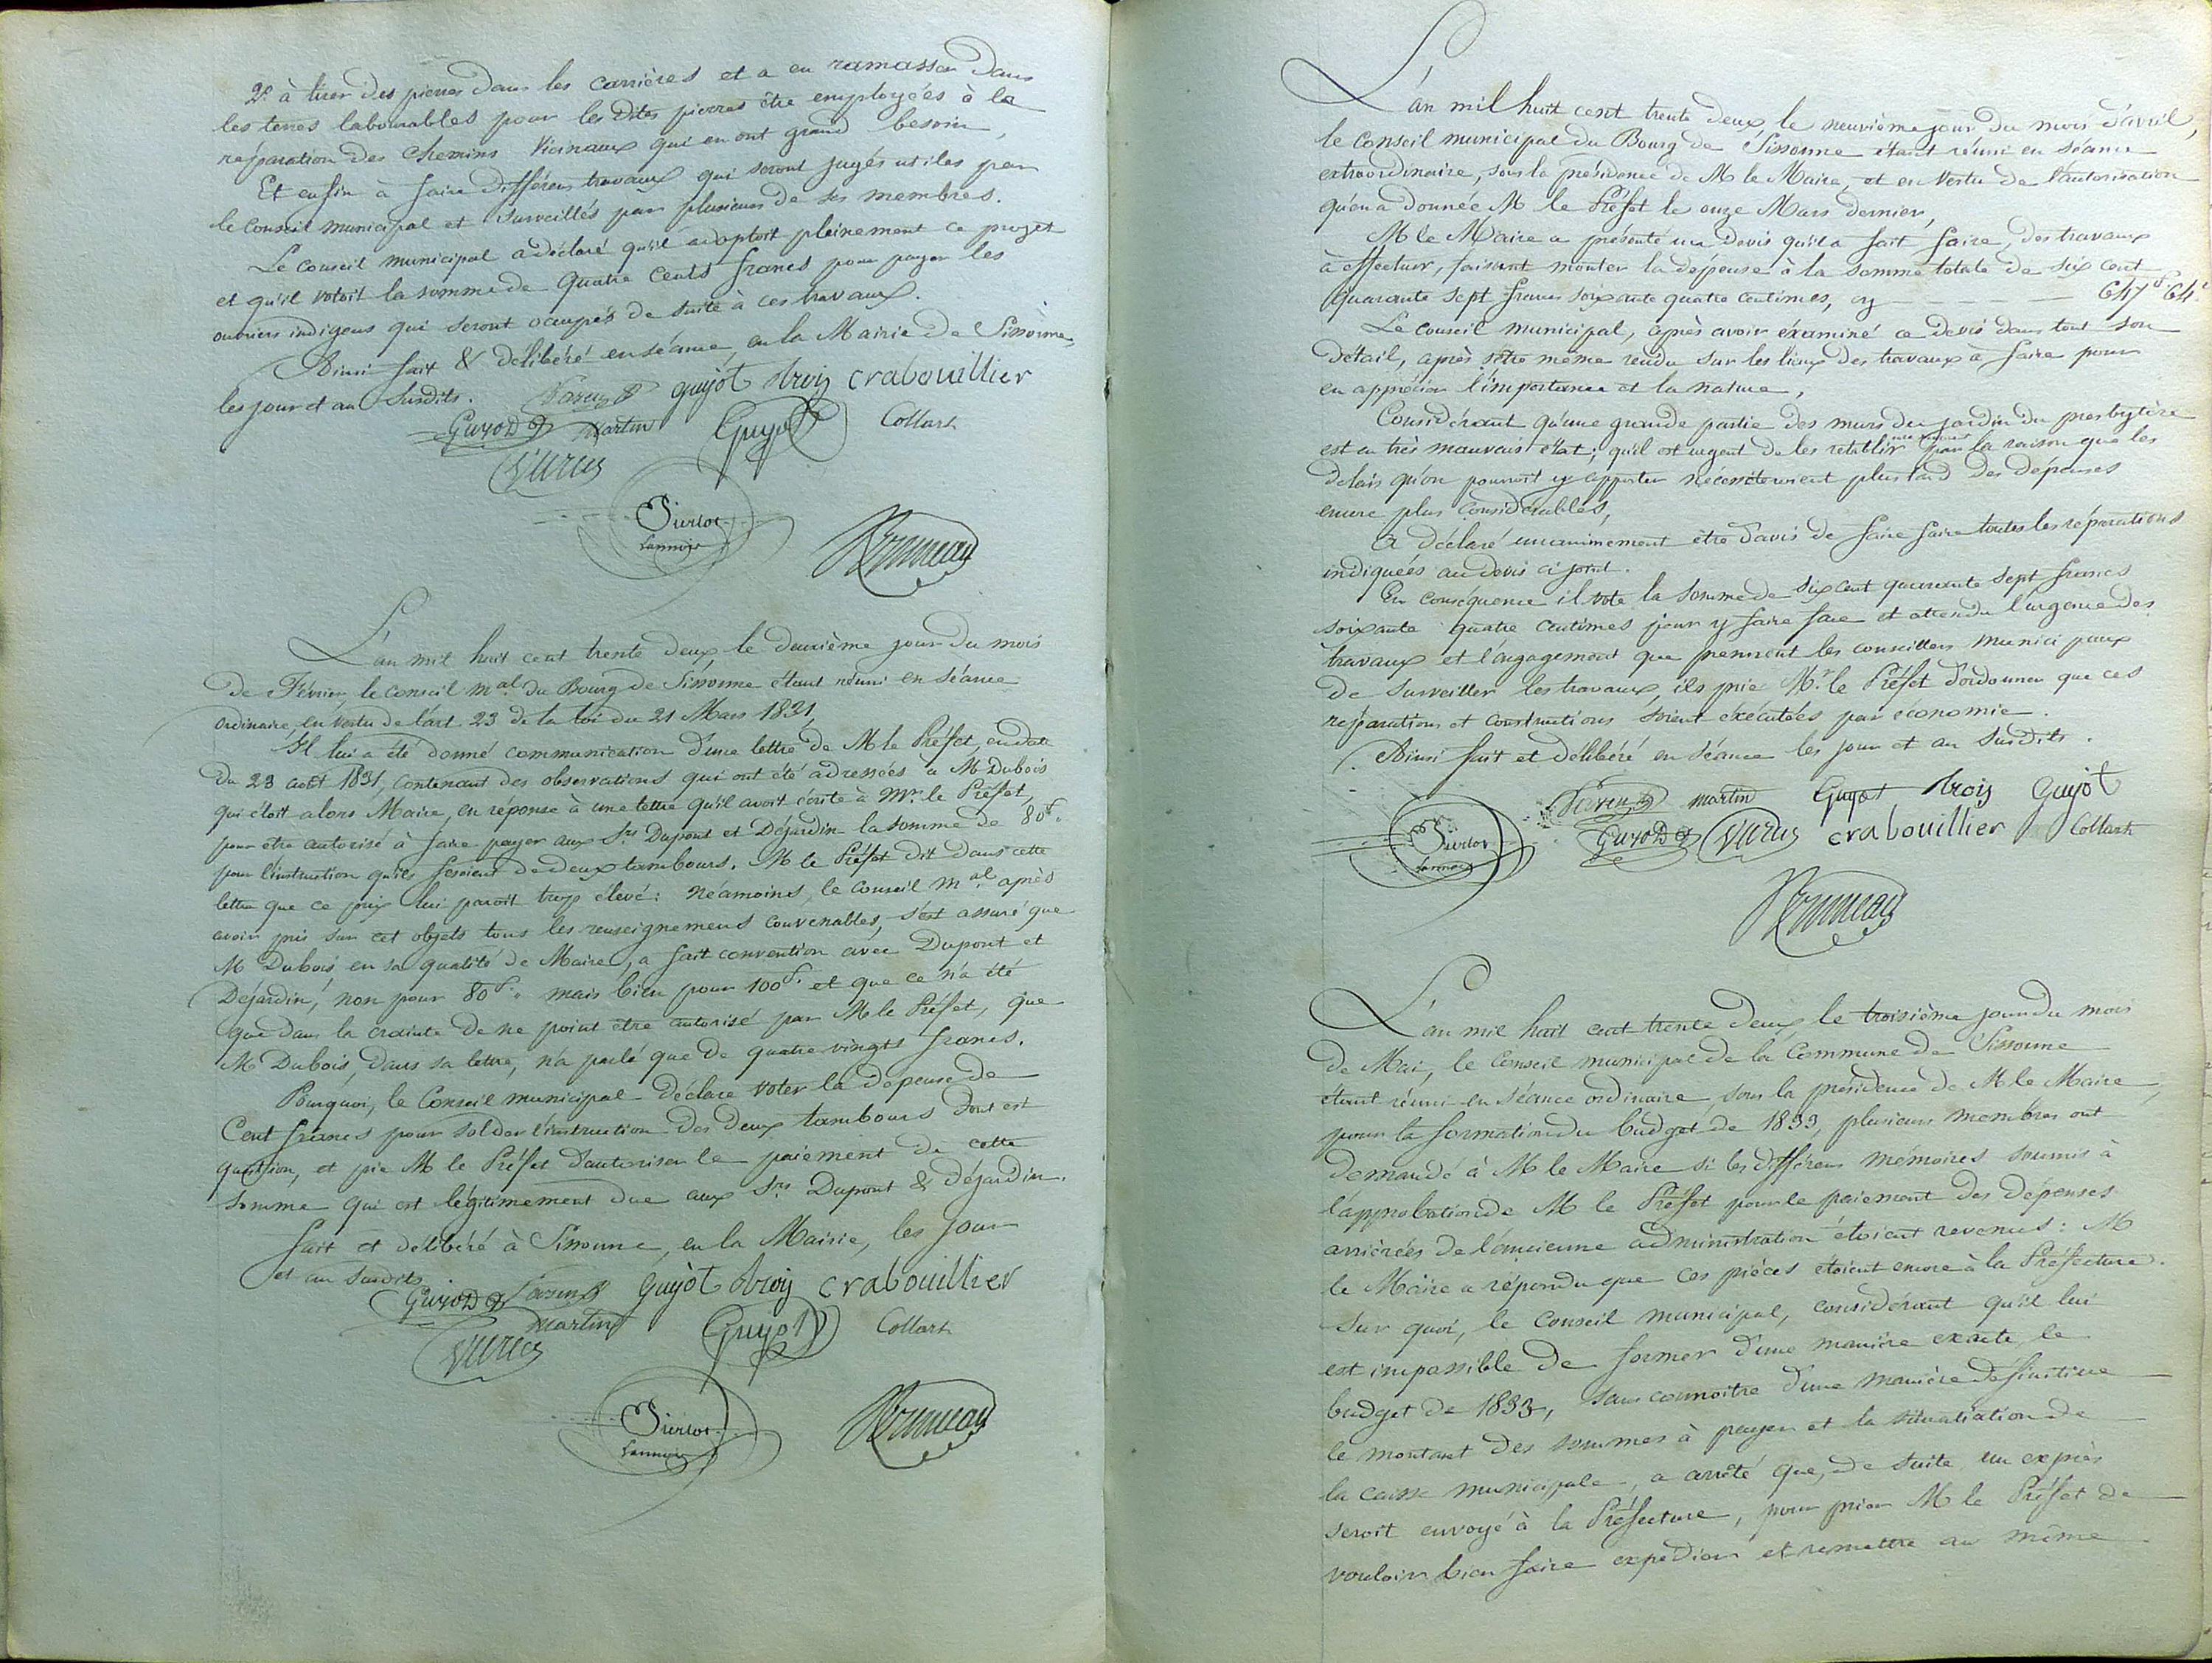 2.° à tirer des pierres dans les carrières et a en ramasser dans
les terres labourables pour les dites pierres être employées à la
réparation des chemins vicinaux qui en ont grand besoin,
Et enfin à faire différens travaux qui seront jugés utiles par
le Conseil municipal et surveillés par plusieurs de ses membres.
Le Conseil municipal a déclaré qu'il adoptoit pleinement ce projet
et qu'il votoit la somme de quatre cents francs pour payer les
ouvriers indigens qui seront occupés de suite à ces travaux.
Ainsi fait & délibéré en séance, en la Mairie de Sissonne,
les jour et an susdits.
guyot troij crabouillier
Guyod martin Guyot Collart
L'an mil huit cent trente deux, le deuxième jour du mois
de Février, le conseil mal du Bourg de Sissonne étant réuni en séance
ordinaire, en vertu de l'art. 23 de la loi du 21 Mars 1831,
Il lui a été donné communication d'une lettre de M le Préfet, en date
du 23 août 1831, contenant des observations qui ont été adressées à M Dubois
qui étoit alors Maire, en réponse à une lettre qu'il avoit écrite à Mr. le Préfet,
pour être autorisé à faire payer aux Srs Dupont et Déjardin la somme de 80f.
pour l'instruction qu'ils fesoient de deux tambours. M le Préfet dit dans cette
lettre que ce prix lui paroit trop élevé: néamoins, le Conseil mal après
avoir pris sur cet objets tous les renseignemens convenables, s'est assuré que
M Dubois en sa qualité de Maire, a fait convention avec Dupont et
Déjardin, non pour 80f. mais bien pour 100f. et que ce n'a été
que dans la crainte de ne point être autorisé par M le Préfet, que
M Dubois, dans sa lettre, n'a parlé que de quatre vingts francs.
Pourquoi, le Conseil municipal déclare voter la dépense de
Cent francs pour solder l'instruction des deux tambours dont est
question, et prie M le Préfet d'autoriser le paiement de cette
somme qui est légitimement due aux Srs Dupont & Déjardin.
fait et délibéré à Sissonne, en la Mairie, les jour
et an susdits.
Guyod guyot troij crabouillier
martin Guyot Collart
L'an mil huit cent trente deux, le neuvième jour du mois d'avril,
le Conseil municipal du Bourg de Sissonne étant réuni en séance
extraordinaire, sous la présidence de M le Maire, et en vertu de l'autorisation
qu'en a donnée M le Préfet le onze Mars dernier,
M le Maire a présenté un devis qu'il a fait faire, des travaux
à effectuer, faisant monter la dépense à la somme totale de six cent
quarante sept francs soixante quatre centimes, cy — — — — — 647f 64c
Le conseil municipal, après avoir éxaminé ce devis dans tout son
détail, après s'être même rendu sur les lieux des travaux à faire pour
en apprécier l'importance et la nature,
Considérant qu'une grande partie des murs du jardin du presbytère
est en très mauvais état; qu'il est urgent de les rétablir par la raison que les
délais qu'on pourroit y apporter nécessiteroient plus tard des dépenses
encore plus considérables,
A déclaré unanimement être d'avis de faire faire toutes les réparations
indiquées au devis ci joint.
En conséquence il vote la somme de six cent quarante sept francs
soixante quatre centimes pour y faire face et attendu l'urgence des
travaux et l'engagement que prennent les conseillers municipaux
de surveiller les travaux, ils prie Mr. le Préfet d'ordonner que ces
réparations et constructions soient éxécutées par économie.
Ainsi fait et délibéré en séance les jour et an susdits.
martin Guyot troij Guyot
Guyod crabouillier Collart
L'an mil huit cent trente deux, le troisième jour du mois
de Mai, le Conseil municipal de la Commune de Sissonne
étant réuni en séance ordinaire, sous la présidence de M le Maire,
pour la formation du budget de 1833, plusieurs membres ont
demandé à M le Maire si les différens mémoires soumis à
l'approbation de M le Préfet pour le paiement des dépenses
arriérées de l'ancienne administration étoient revenus: M
le Maire a répondu que ces pièces étoient encore à la Préfecture.
Sur quoi, le Conseil municipal, considérant qu'il lui
est impossible de former d'une manière exacte, le
budget de 1833, sans connoitre d'une manière définitive
le montant des sommes à payer et la situatiation de
la caisse municipale, a arrêté que, de suite un exprès
seroit envoyé à la Préfecture, pour prier M le Préfet de
vouloir bien faire expédier et remettre au même